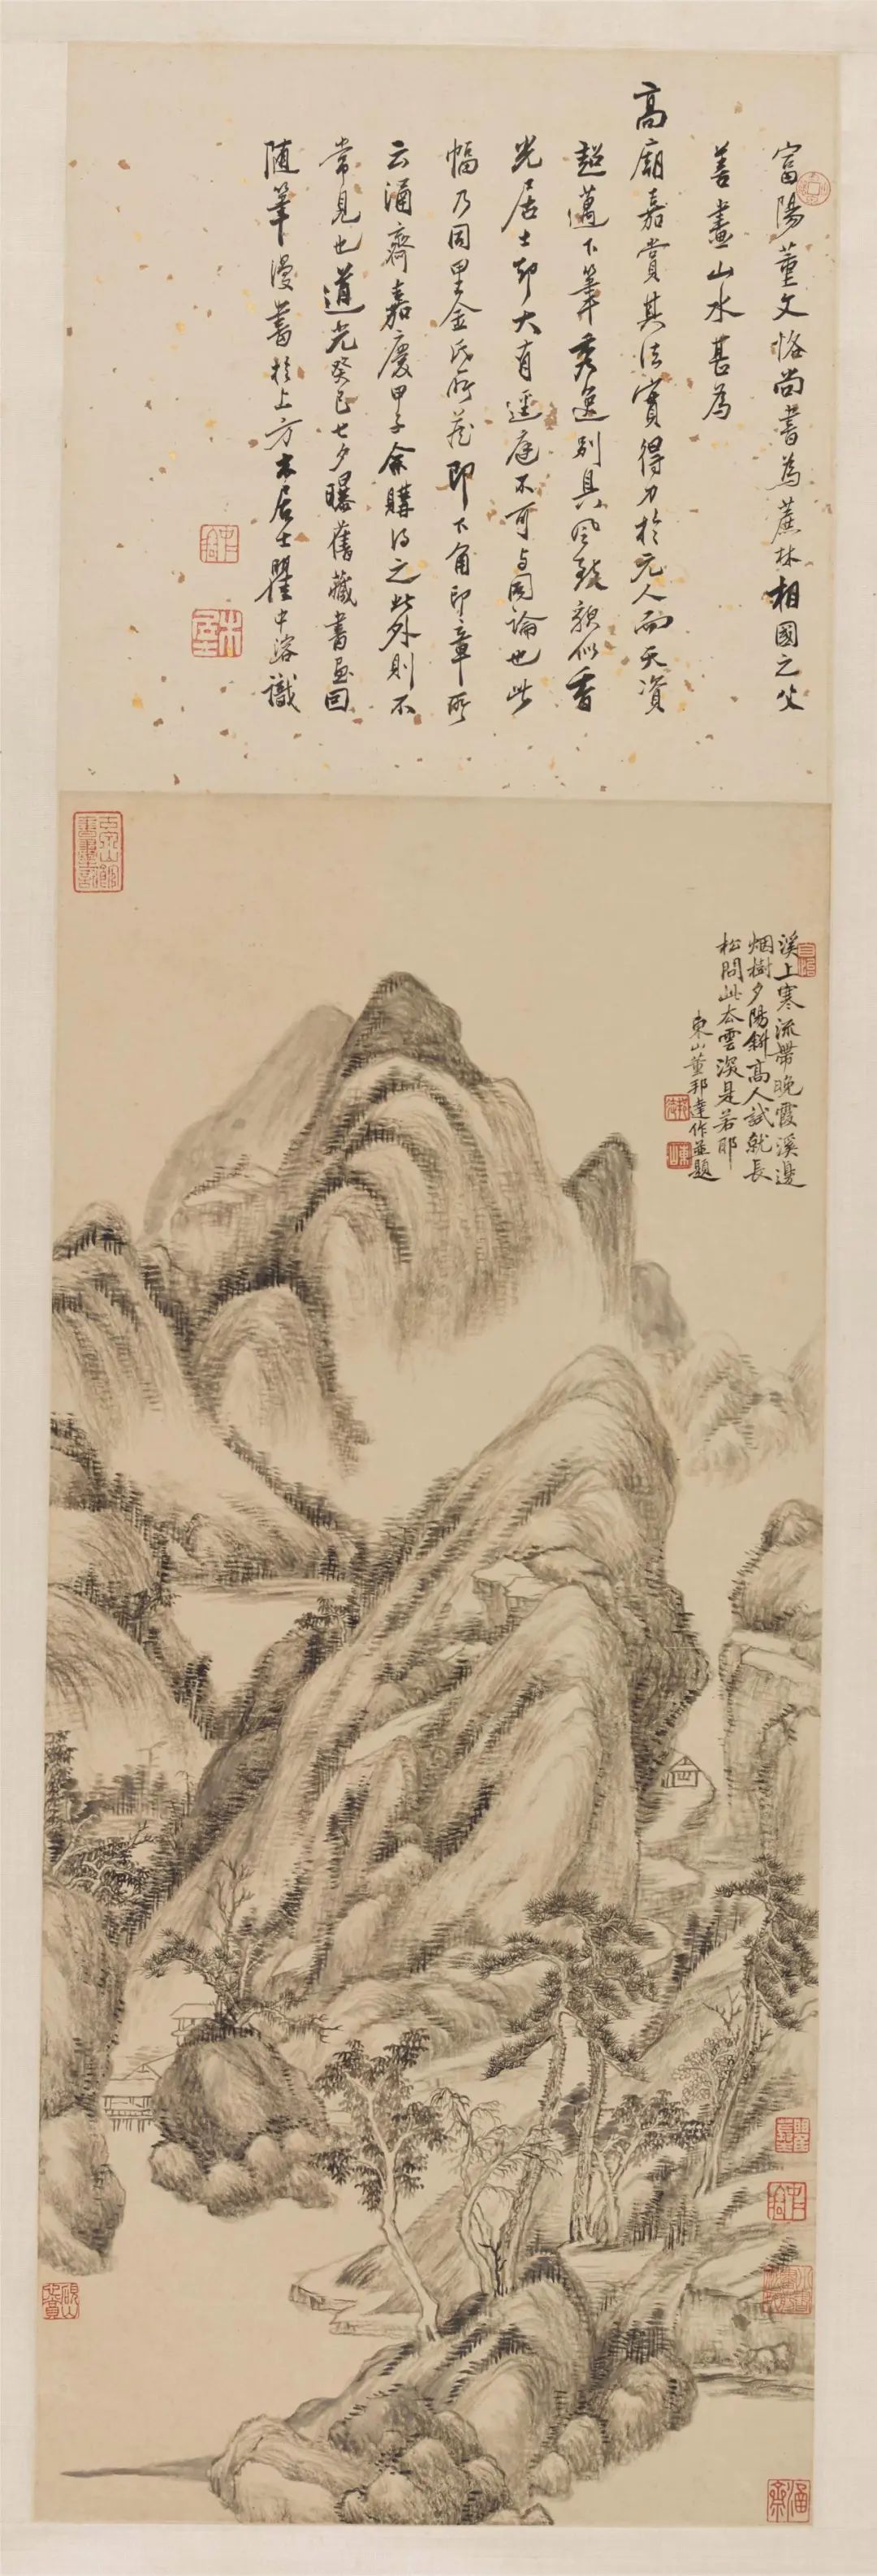 富陽董文恪尚書為蔗林相國之父
善畫山水甚為
高廟嘉賞其法實得力於元人而天資
超邁下筆秀逸別具風致貌似香
光居士却大有逕庭不可与同論也此
幅乃同里金氏所藏即下角印章所
云涌齋嘉慶甲子余購得之此外則不
常見也道光癸巳七夕曝舊藏書画回
隨筆漫書於上方木居士瞿中溶識
中溶
木居士
溪上寒流帶晚霞溪邊
烟樹夕陽斜高人試就長
松問此去雲深是若耶
東山董邦達作並題
中溶
涌齋